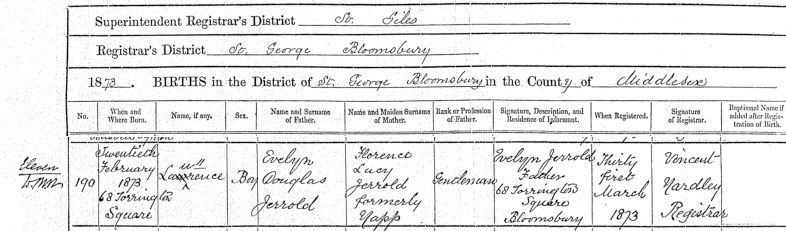 Superintendent Registrar's District St. Giles
Registrar's District St. George Bloomsbury
1873. BIRTHS in the District of St. George Bloomsbury in the County of Middlesex
No. When and Where Born. Name, if any. Sex. Name and Surname of Father. Name and Maiden Surname of Mother. Rank or Profession of Father. Signature, Description, and Residence of Informant. When Registered. Signature of Registrar. Baptismal Name if added after Registration of Birth.
Eleven
190
Twentieth
February
1873
68 Torrington
Square
Lawrence
Boy
Evelyn
Douglas
Jerrold
Florence
Lucy
Jerrold
formerly
Yapp
Gentleman
Evelyn Jerrold
Father
68 Torrington
Square
Bloomsbury
Thirty
first
March
1873
Vincent
Yardley
Registrar